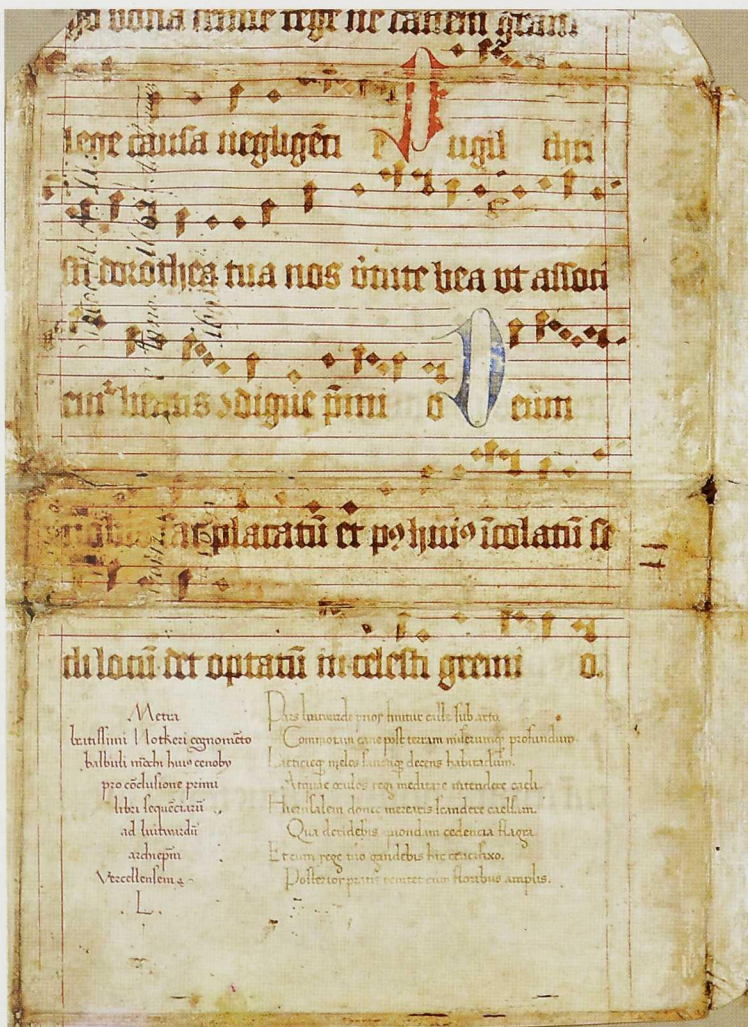 bona mente rege ne canem gram
lege causa negligēti e ugil chri
sti dorothea tua nos v̄tute bea ut assoti
em² beatis ɔdigne p̄mi o Deum
placatū et pꝯ huiꝯ īcolatū se
di locū det optatū in celesti gremi o.
Metra
beatissimi Notkeri cognomēto
balbuli mōchi huiꝯ cenoby
pro cōclusione primi
libri sequēciarū
ad luitwardū
archiepm̄
Vercellensem
L.
Pars luitwarde prior finitur calle sub arto,
Commoram cane post terram miserumq profundum
Laeticieq melos sanctisq decens habitaclum.
Atque oculos regi meditare intendere caeli.
Hierusalem donec merearis scandere caelsam.
Qua decidebis quondam cedencia flagra
Et cum rege tuo gaudebis hic crucifixo.
Posterior pratis renitet cum floribus amplis.